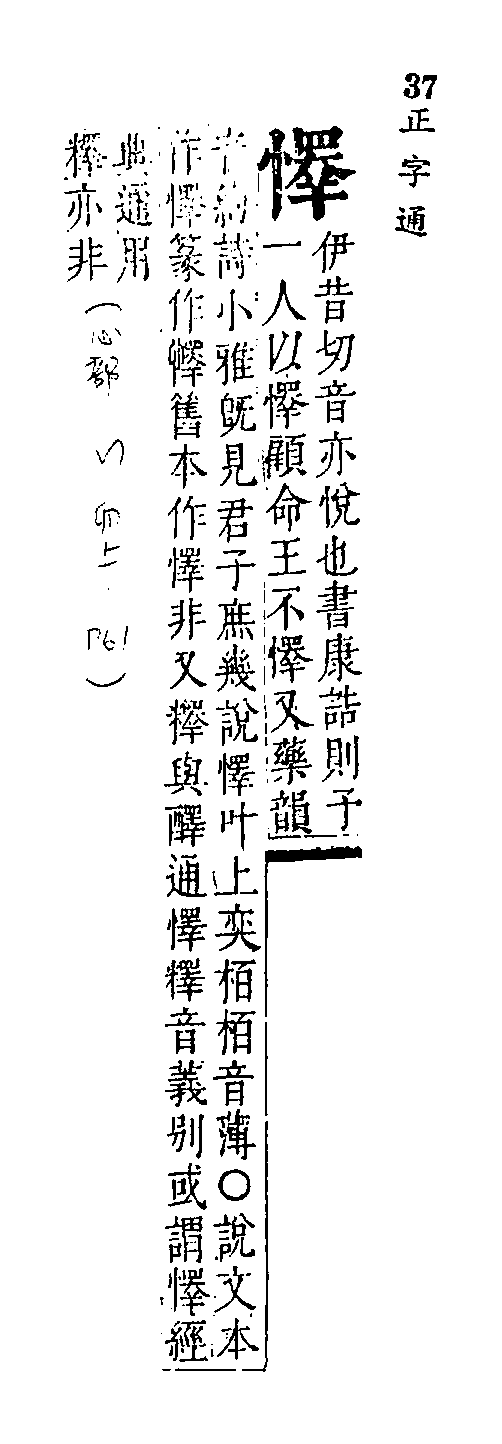 37
正字通
懌
伊昔切音亦悅也書康誥則予
一人以懌顧命王不懌又藥韻
音約詩小雅旣見君子庶幾說懌叶上奕栢栢音薄○說文本
作懌篆作懌舊本作懌非又釋與醳通懌釋音義別或謂懌經
典通用
釋亦非(心部 卯上 P61)